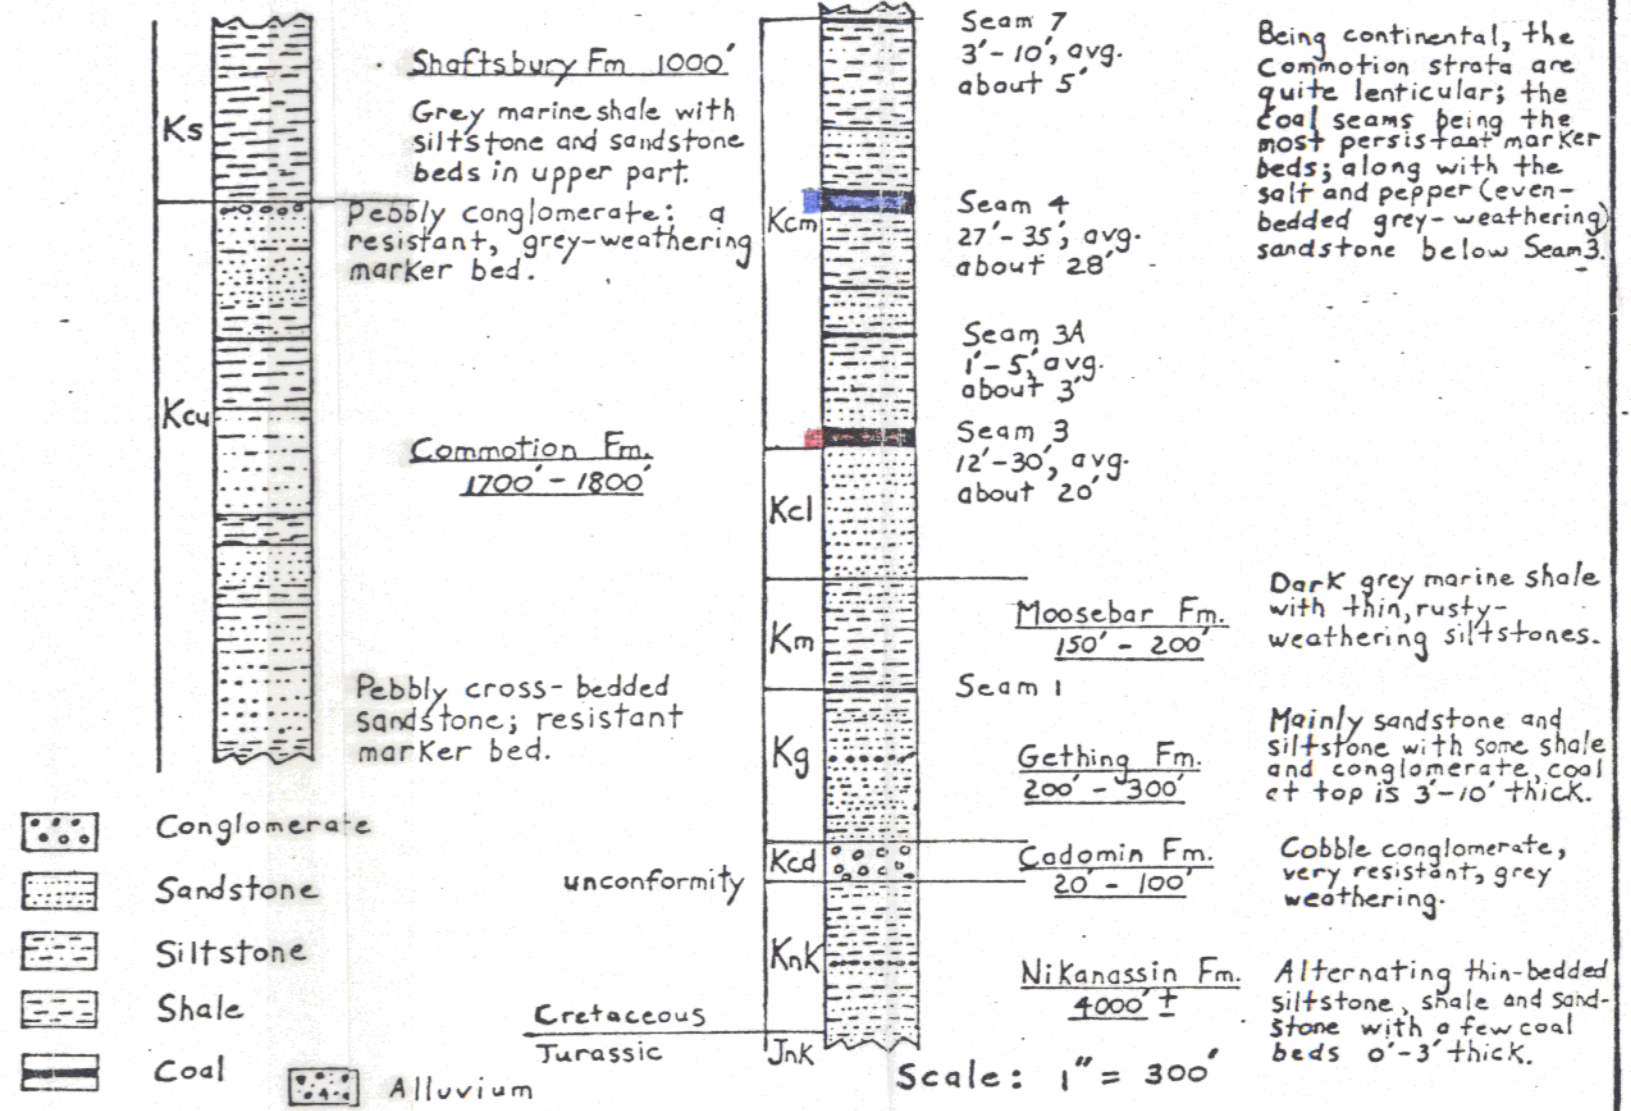 Ks
Shaftsbury Fm 1000'
Grey marine shale with
siltstone and sandstone
beds in upper part.
Pebbly conglomerate: a
resistant, grey-weathering
marker bed.
Kcu
Commotion Fm.
1700' - 1800'
Pebbly cross-bedded
sandstone; resistant
marker bed.
Conglomerate
Sandstone
Siltstone
Shale
Coal
Alluvium
unconformity
Cretaceous
Jurassic
Kcm
Kcl
Km
Kg
Kcd
Knk
Jnk
Seam 7
3'-10', avg.
about 5'
Seam 4
27'-35', avg.
about 28'
Seam 3A
1'-5', avg.
about 3'
Seam 3
12'-30', avg.
about 20'
Moosebar Fm.
150' - 200'
Seam 1
Gething Fm.
200' - 300'
Cadomin Fm.
20' - 100'
Nikanassin Fm.
4000' ±
Scale: 1" = 300'
Being continental, the
Commotion strata are
quite lenticular; the
coal seams being the
most persistant marker
beds; along with the
salt and pepper (even-
bedded grey-weathering)
sandstone below Seam 3.
Dark grey marine shale
with thin, rusty-
weathering siltstones.
Mainly sandstone and
siltstone with some shale
and conglomerate, coal
at top is 3'-10' thick.
Cobble conglomerate,
very resistant, grey
weathering.
Alternating thin-bedded
siltstone, shale and sand-
stone with a few coal
beds 0'-3' thick.